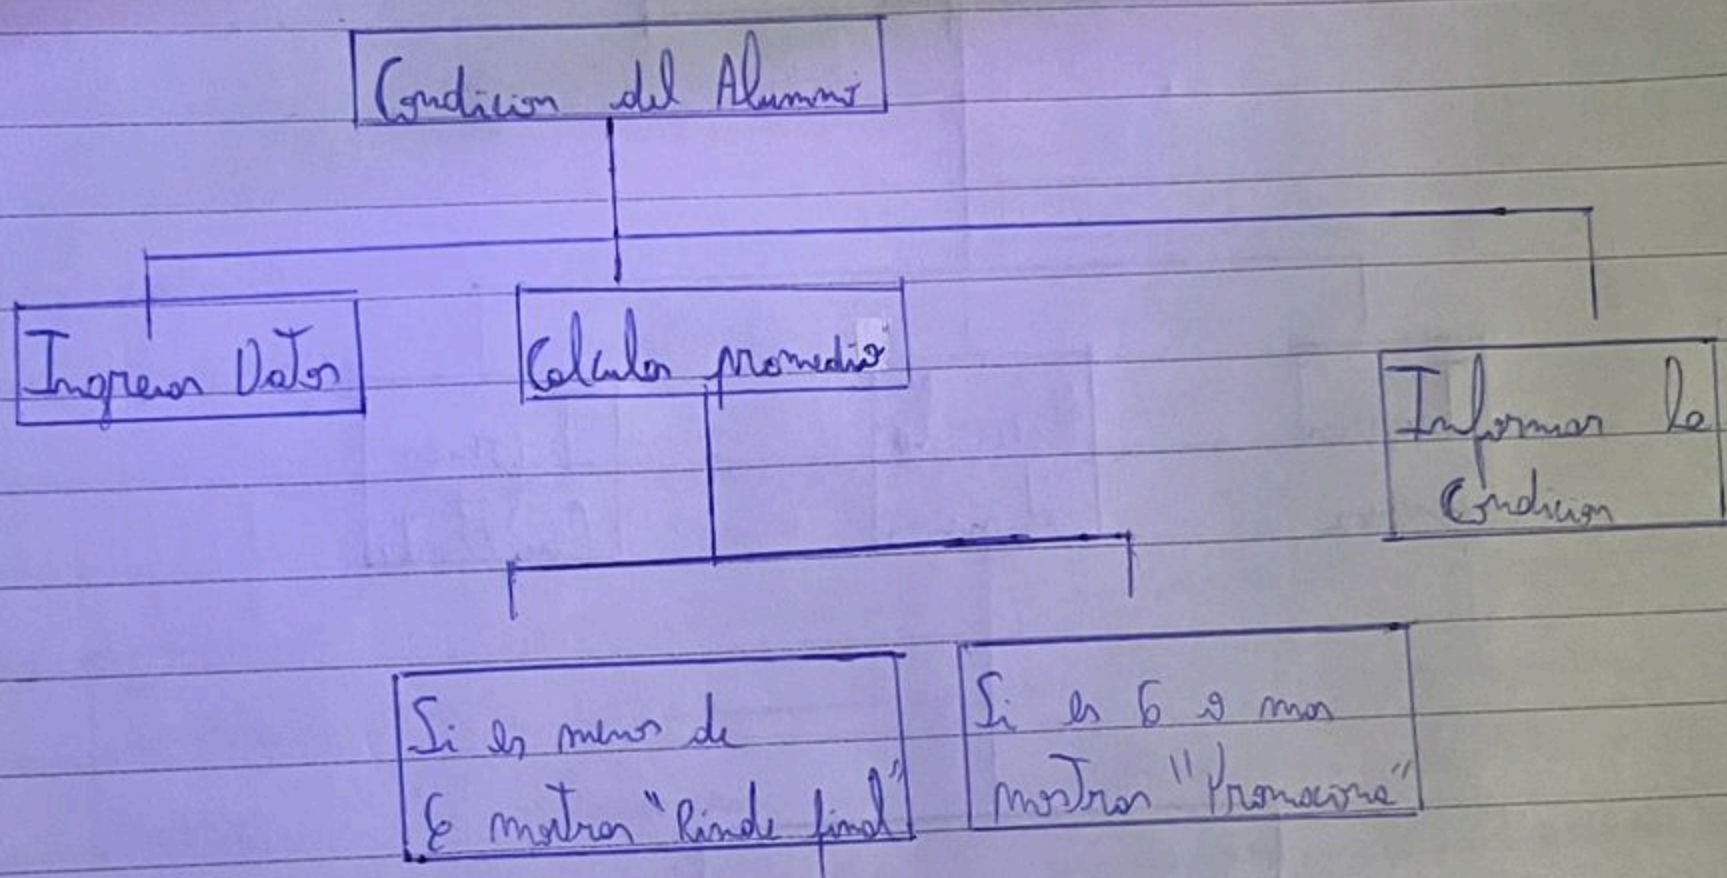 Condicion del Alumno
Ingresar Datos
Calcular promedio
Informar la
Condicion
Si es menor de
6 mostrar "Rinde final"
Si es 6 o mas
mostrar "Promociona"